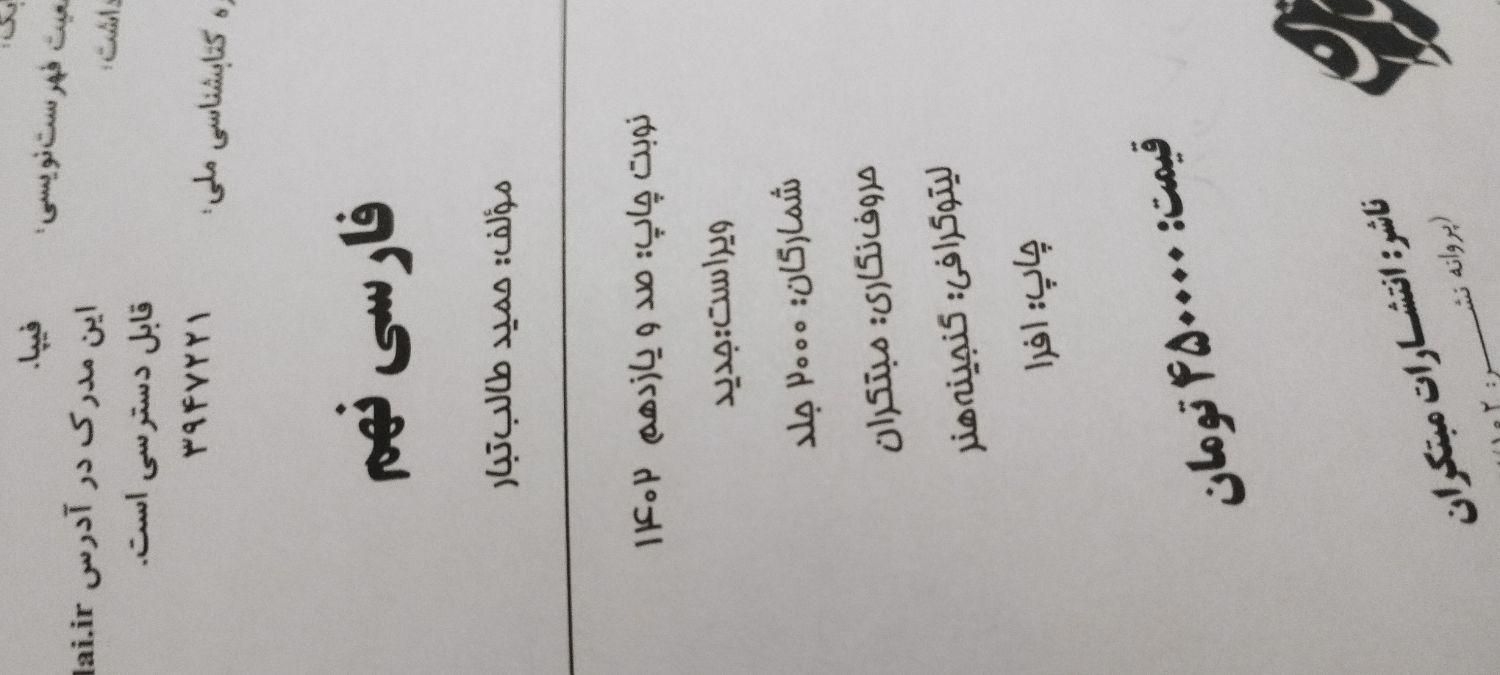 فهرست‌نویسی: فیپا.
این مدرک در آدرس lai.ir
قابل دسترسی است.
کتابشناسی ملی: ۳۹۴۷۲۲۱
فارسی نهم
مؤلف: حمید طالب‌تبار
نوبت چاپ: صد و یازدهم ۱۴۰۲
ویراست: جدید
شمارگان: ۲۰۰۰ جلد
حروف‌نگاری: مبتکران
لیتوگرافی: گنجینه‌هنر
چاپ: افرا
قیمت: ۴۵۰۰۰۰ تومان
ناشر: انتشارات مبتکران
(پروانه